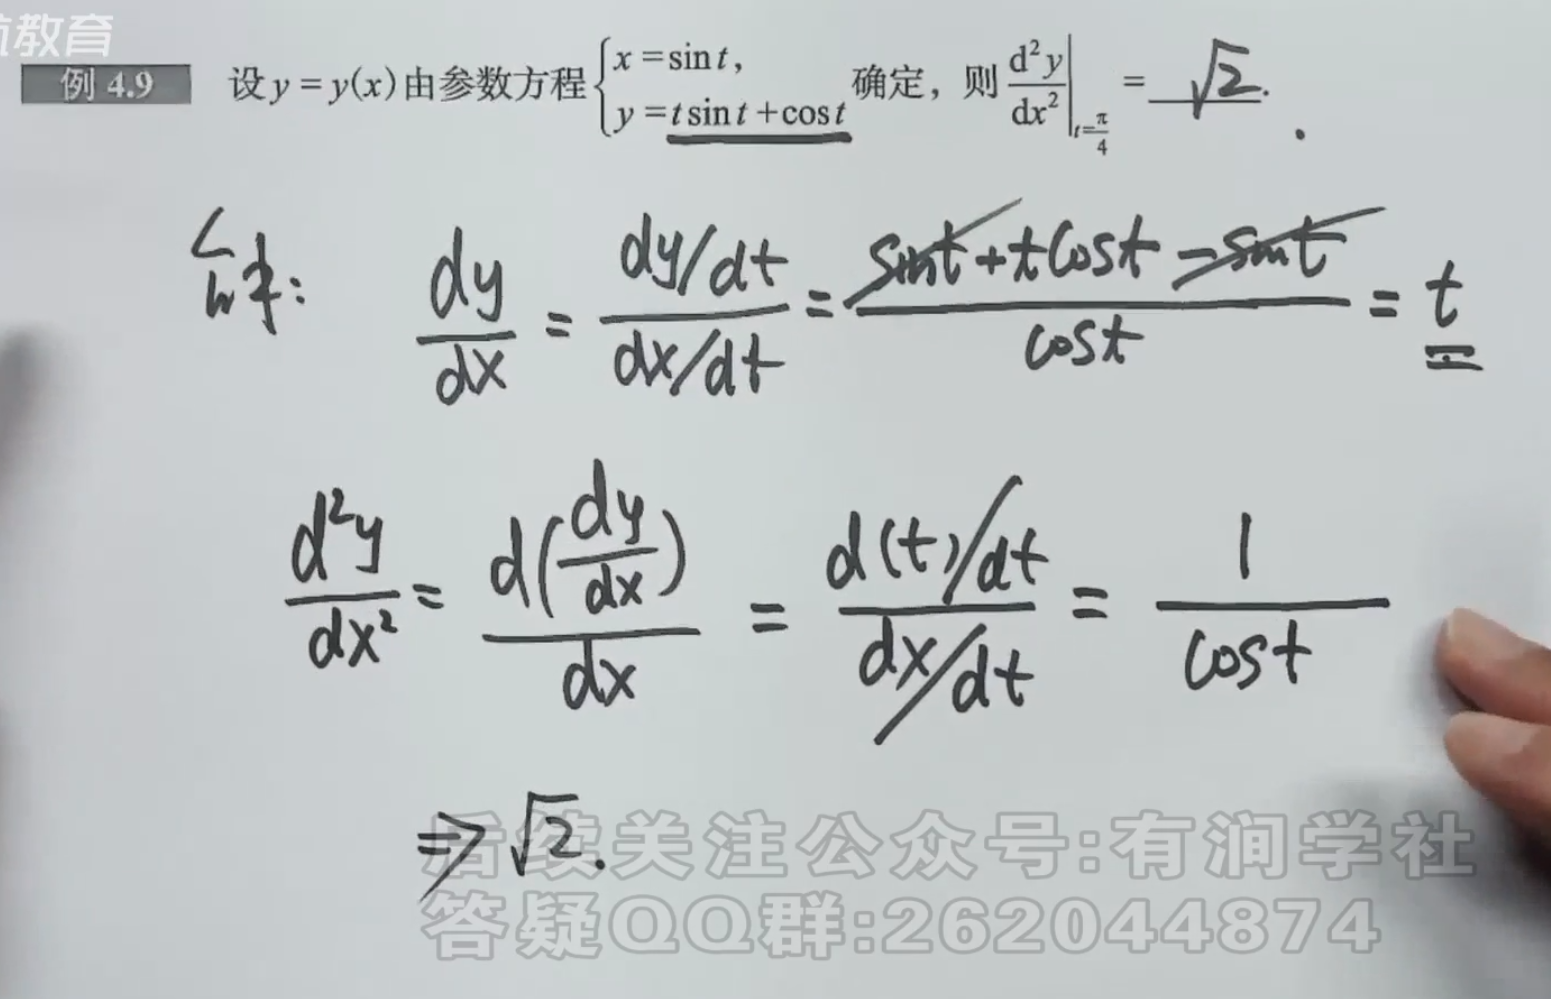 航教育
例 4.9 设 y = y(x) 由参数方程 { x = sin t, y = t sin t + cos t 确定，则 d²y/dx² |t=π/4 = √2.
解: dy/dx = (dy/dt)/(dx/dt) = (sint + tcost - sint)/cost = t
d²y/dx² = d(dy/dx)/dx = (d(t)/dt)/(dx/dt) = 1/cost
⇒ √2.
后续关注公众号:有润学社
答疑QQ群:262044874